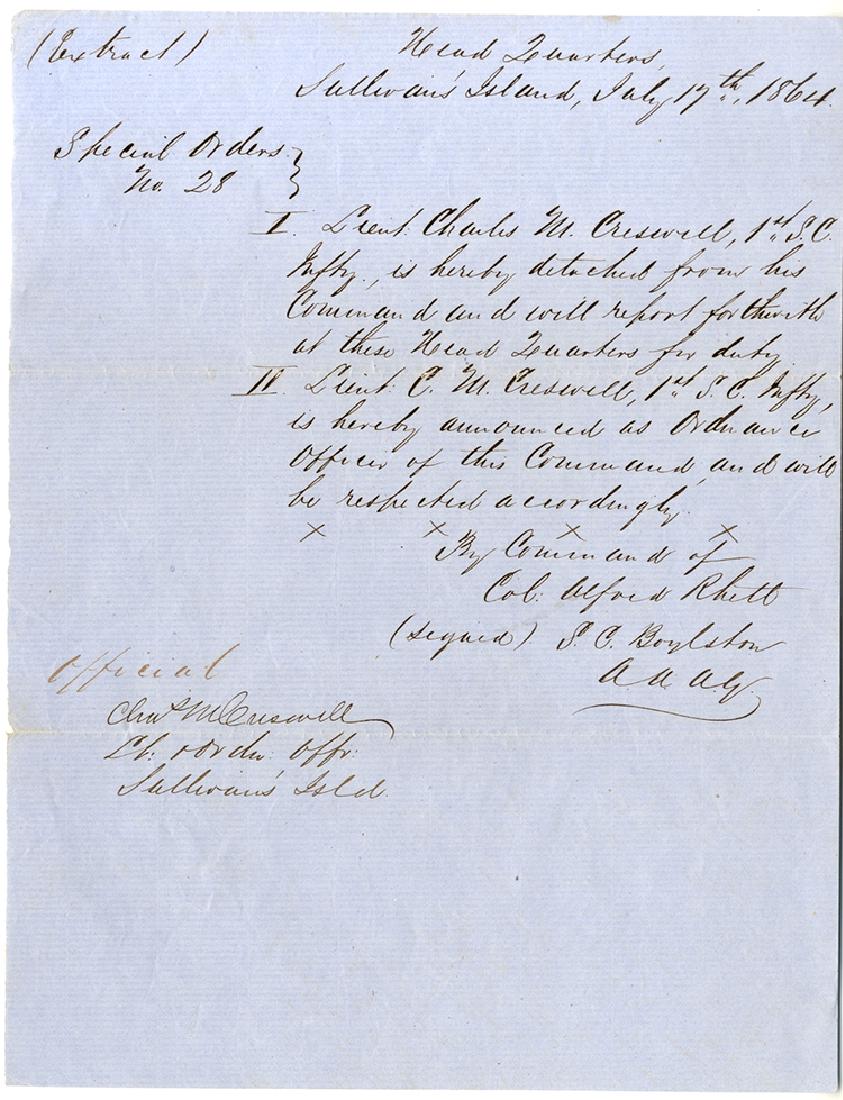 (Extract)
Head Quarters,
Sullivan's Island, July 17th, 1864.
Special Orders }
No. 28
I. Lieut. Charles M. Creswell, 1st S.C.
Infty., is hereby detached from his
Command and will report forthwith
at these Head Quarters for duty.
II. Lieut: C. M. Creswell, 1st S. C. Infty,
is hereby announced as Ordnance
Officer of this Command, and will
be respected accordingly.
x x x x
By Command of
Col: Alfred Rhett
(signed) S. C. Boylston
A A A G.
Official
Chas M Creswell
Lt: & Ordn. Offr:
Sullivan's Isld.